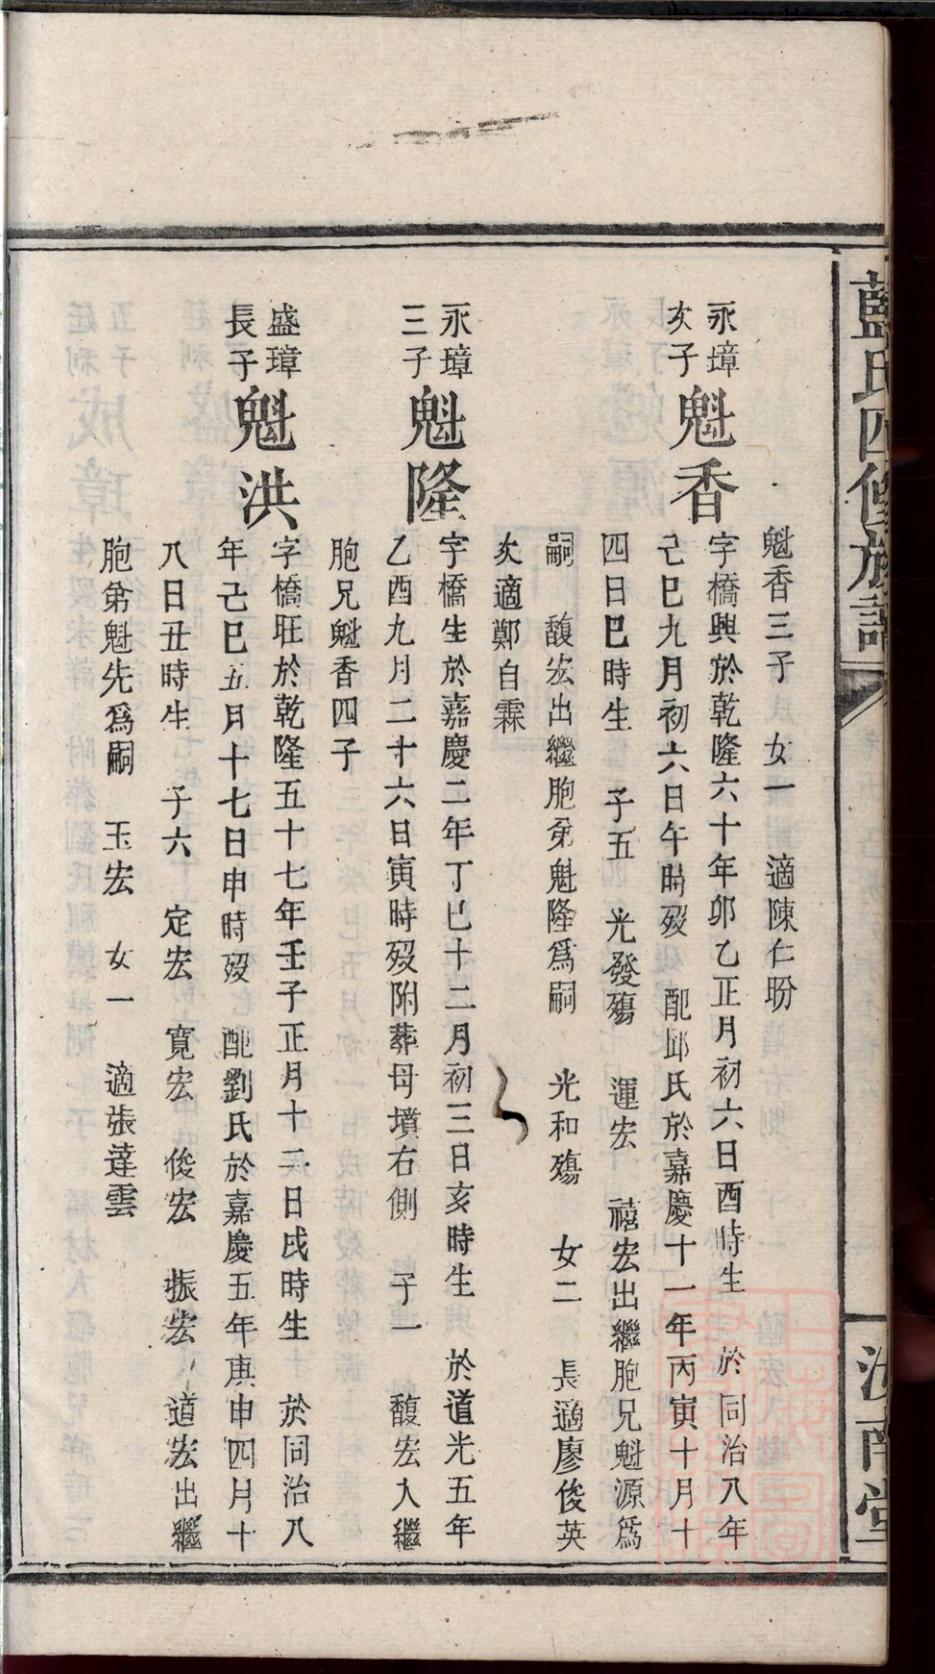 藍氏四修族譜
汝南堂
魁香三子 女一 適陳仁盼
永璋
次子
魁香
字橋興於乾隆六十年卯乙正月初六日酉時生 於同治八年
己巳九月初六日午時歿 配邱氏於嘉慶十一年丙寅十月十
四日巳時生 子五 光發殤 運宏 禧宏出繼胞兄魁源爲
嗣 馥宏出繼胞弟魁隆爲嗣 光和殤 女二 長適廖俊英
次適鄭自霖
永璋
三子
魁隆
字橋生於嘉慶二年丁巳十二月初三日亥時生 於道光五年
乙酉九月二十六日寅時歿附葬母墳右側 子一 馥宏入繼
胞兄魁香四子
盛璋
長子
魁洪
字橋旺於乾隆五十七年壬子正月十二日戌時生 於同治八
年己巳五月十七日申時歿 配劉氏於嘉慶五年庚申四月十
八日丑時生 子六 定宏 寬宏 俊宏 振宏 道宏出繼
胞弟魁先爲嗣 玉宏 女一 適張達雲